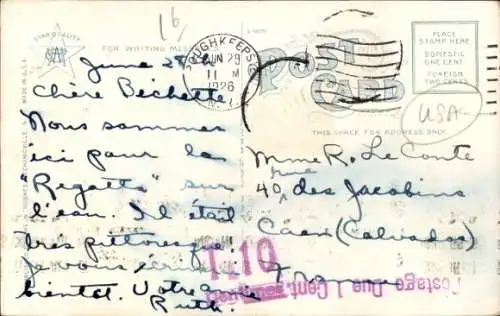 STAR QUALITY
FOR WRITING MESSAGES
MADE IN U.S.A.
16
POUGHKEEPSIE
JUN 29
11 M
1926
N.Y.
POST
CARD
PLACE
STAMP HERE
DOMESTIC
ONE CENT
FOREIGN
TWO CENTS
USA
THIS SPACE FOR ADDRESS ONLY.
June 28
Chère Bechette
Nous sommes
ici pour la
"Regatta" sur
l'eau. Il était
très pittoresque.
Je vous écrirai
bientôt. Votre amie
Ruth.
Mme R. Le Conte
40 rue des Jacobins
Caen (Calvados)
Postage Due 1 Cent